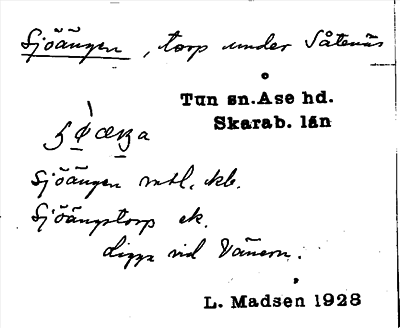 Sjöängen, torp under Såtenäs
Tun sn. Åse hd.
Skarab. län
Sjöängen mtl. kb.
Sjöängstorp ek.
Ligga vid Vänern.
L. Madsen 1928